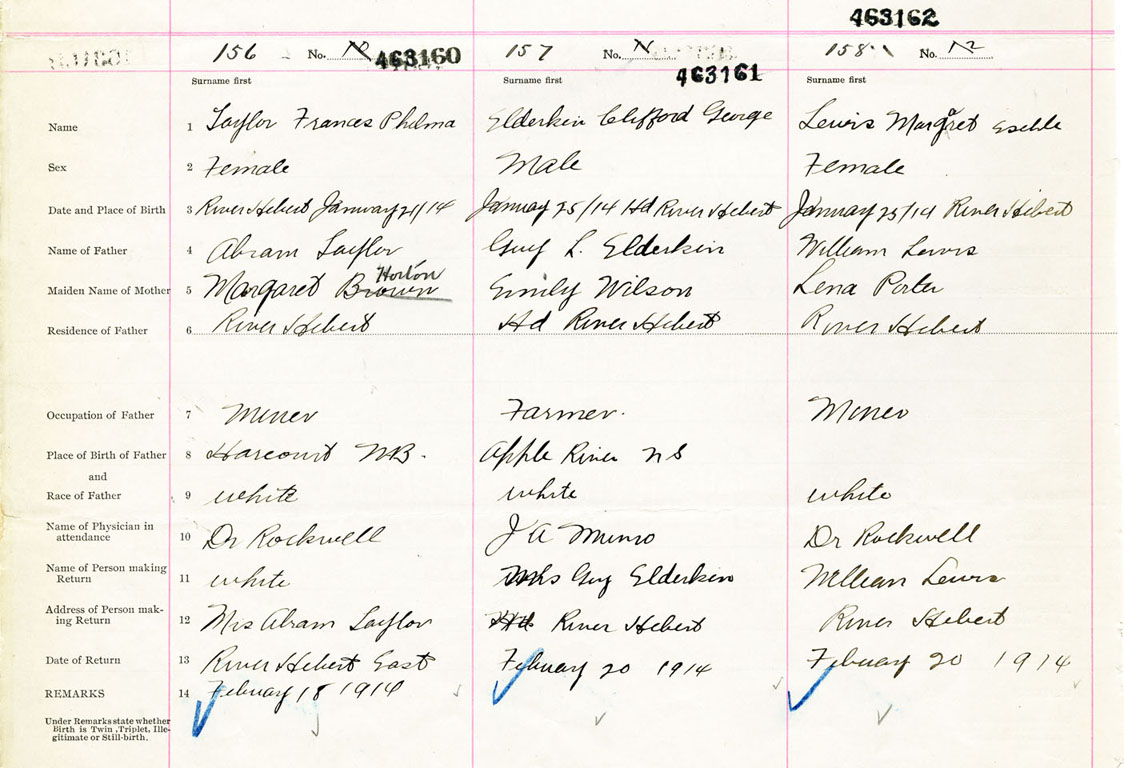 463162
156 No. 12 463160 157 No. N 463161 158 No. 12
Surname first Surname first Surname first
Name 1 Taylor Frances Phelma Elderkin Clifford George Lewis Margret
Sex 2 Female Male Female
Date and Place of Birth 3 River Hebert January 21/14 January 25/14 Hd River Hebert January 25/14 River Hebert
Name of Father 4 Abram Taylor Guy L. Elderkin William Lewis
Horton
Maiden Name of Mother 5 Margaret Brown Emily Wilson Lena Porter
Residence of Father 6 River Hebert Hd River Hebert River Hebert
Occupation of Father 7 Miner Farmer. Miner
Place of Birth of Father 8 Harcourt NB. Apple River NS
and
Race of Father 9 white white white
Name of Physician in
attendance 10 Dr Rockwell J A Munro Dr Rockwell
Name of Person making
Return 11 white Mrs Guy Elderkin William Lewis
Address of Person mak-
ing Return 12 Mrs Abram Taylor Hd River Hebert River Hebert
Date of Return 13 River Hebert East Febuary 20 1914 Febuary 20 1914
REMARKS 14 Febuary 18 1914
Under Remarks state whether
Birth is Twin, Triplet, Ille-
gitimate or Still-birth.